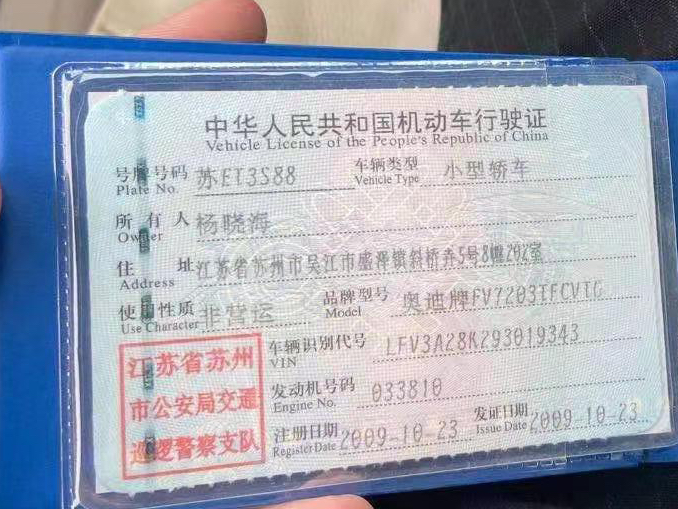 中华人民共和国机动车行驶证
Vehicle License of the People's Republic of China
号牌号码 苏ET3S88 车辆类型 小型轿车
Plate No. Vehicle Type
所有人 杨晓海
Owner
住址 江苏省苏州市吴江市盛泽镇斜桥弄5号8幢202室
Address
使用性质 非营运 品牌型号 奥迪牌FV7203TFCVTG
Use Character Model
车辆识别代号 LFV3A28K293019343
VIN
发动机号码 033810
Engine No.
注册日期 2009-10-23 发证日期 2009-10-23
Register Date Issue Date
江苏省苏州
市公安局交通
巡逻警察支队